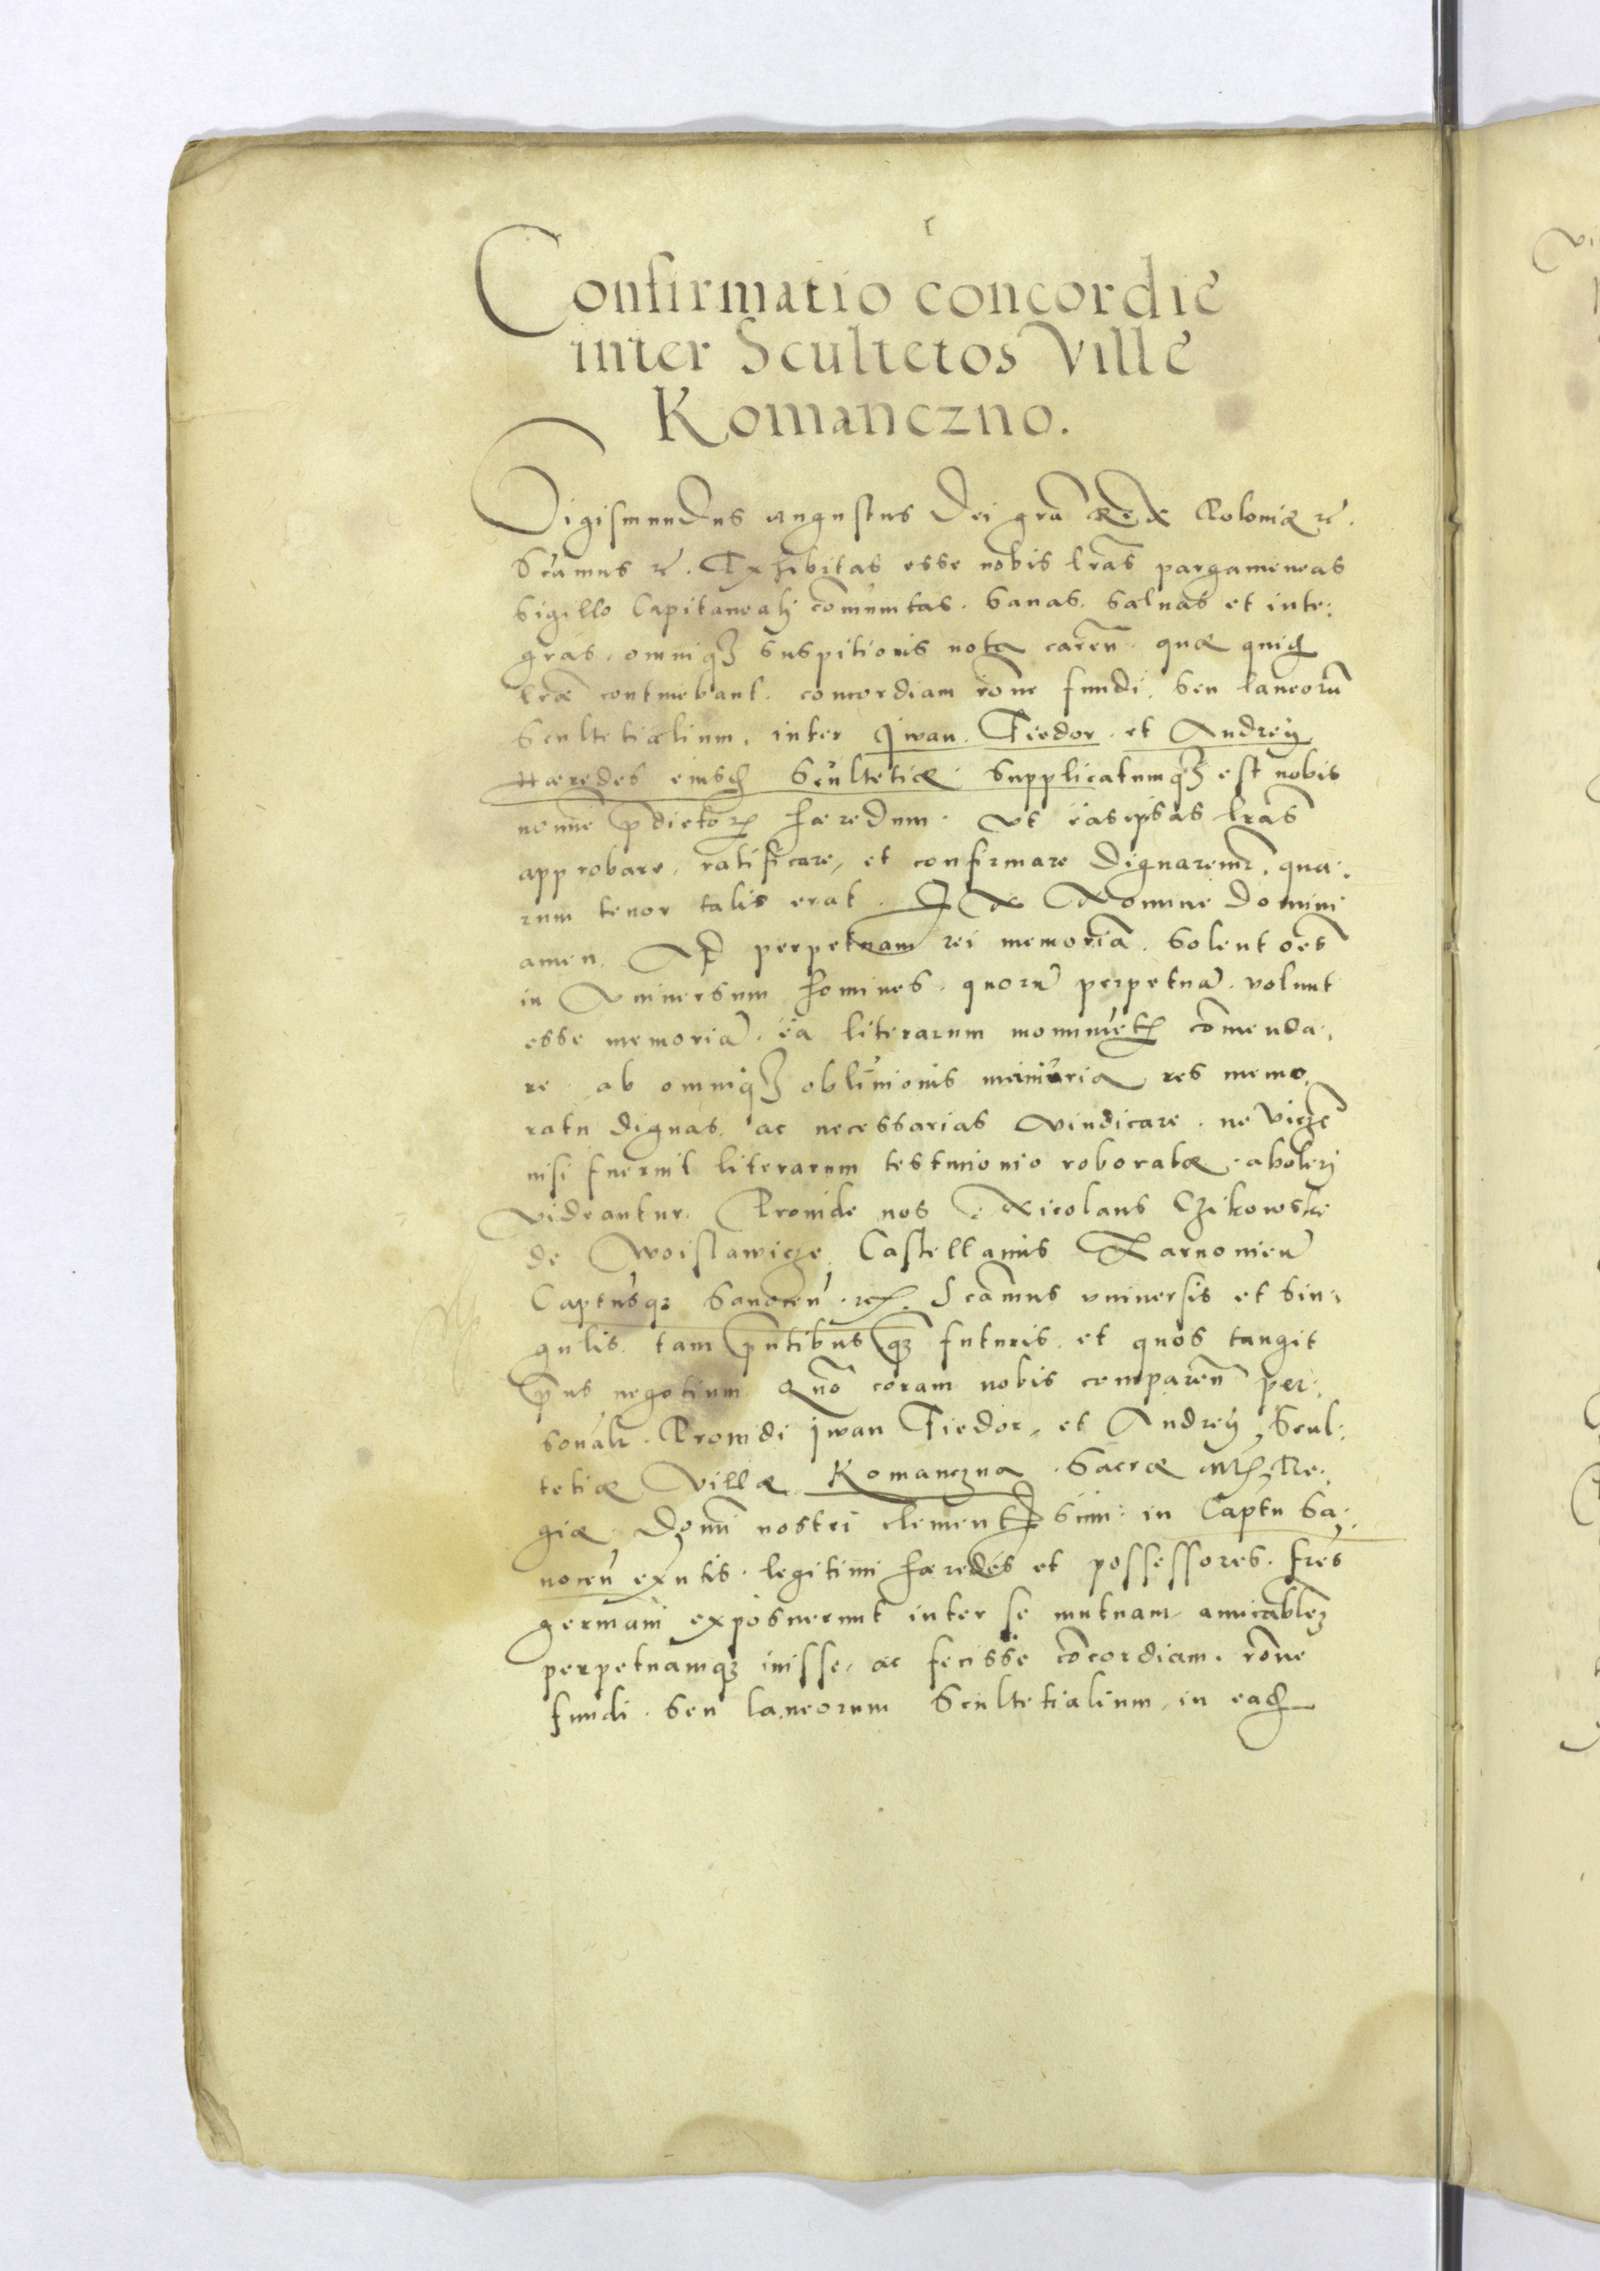 Confirmatio concordie
inter Scultetos Ville
Komanczno.
Sigismundus augustus Dei gra Rex Poloniæ rc.
Scamus rc. Exhibitas esse nobis lras pargameneas
Sigillo Capitaneali comunitas. Sanas. Saluas et inte:
gras. omniqȝ suspitionis nota caren. quæ quid
lræ continebant. concordiam rone fundi. Seu laneoru
Scultetialium. inter Iwan. Fiedor. et Andreÿ
Hæredes eiusd Scultetiæ. Supplicatumqȝ est nobis
nomine pdictoꝝ hæredum. vt easipsas lras
approbare, ratificare, et confirmare dignaremr. qua:
rum tenor talis erat. In Nomine Domini
amen. Ad perpetuam rei memoria. Solent oes
in Vniuersum homines. quoru perpetua. volunt
esse memoria. ea literarum monumetꝭ comenda:
re. ab omniqȝ obliuionis iniuria res memo,
ratu dignas. ac necessarias vindicare. ne
nisi fuerint literarum testimonio roboratæ. aboleri
videantur. Proinde nos Nicolaus Czikowski
de Woislawicze. Castellanus Tarnouien
Captusqȝ Sanocen. rc. Scamus vniuersis et Sin:
gulis. tam pntibus qȝ futuris. et quos tangit
pns negotium. Quo coram nobis comparen per:
sonalr. Prouidi Iwan Fiedor, et Andreÿ, Scul:
tetiæ Villæ Komanczna. Sacræ Mtis Re:
giæ. Domi nostri clementissimi: in Captu Sa:
nocen exntis. legitimi hæredes et possessores. fres
germani exposuerunt inter se mutuam. amicablemȝ
perpetuamqȝ inisse. ac fecisse cocordiam. rone
fundi. Seu laneorum Scultetialium, in ead